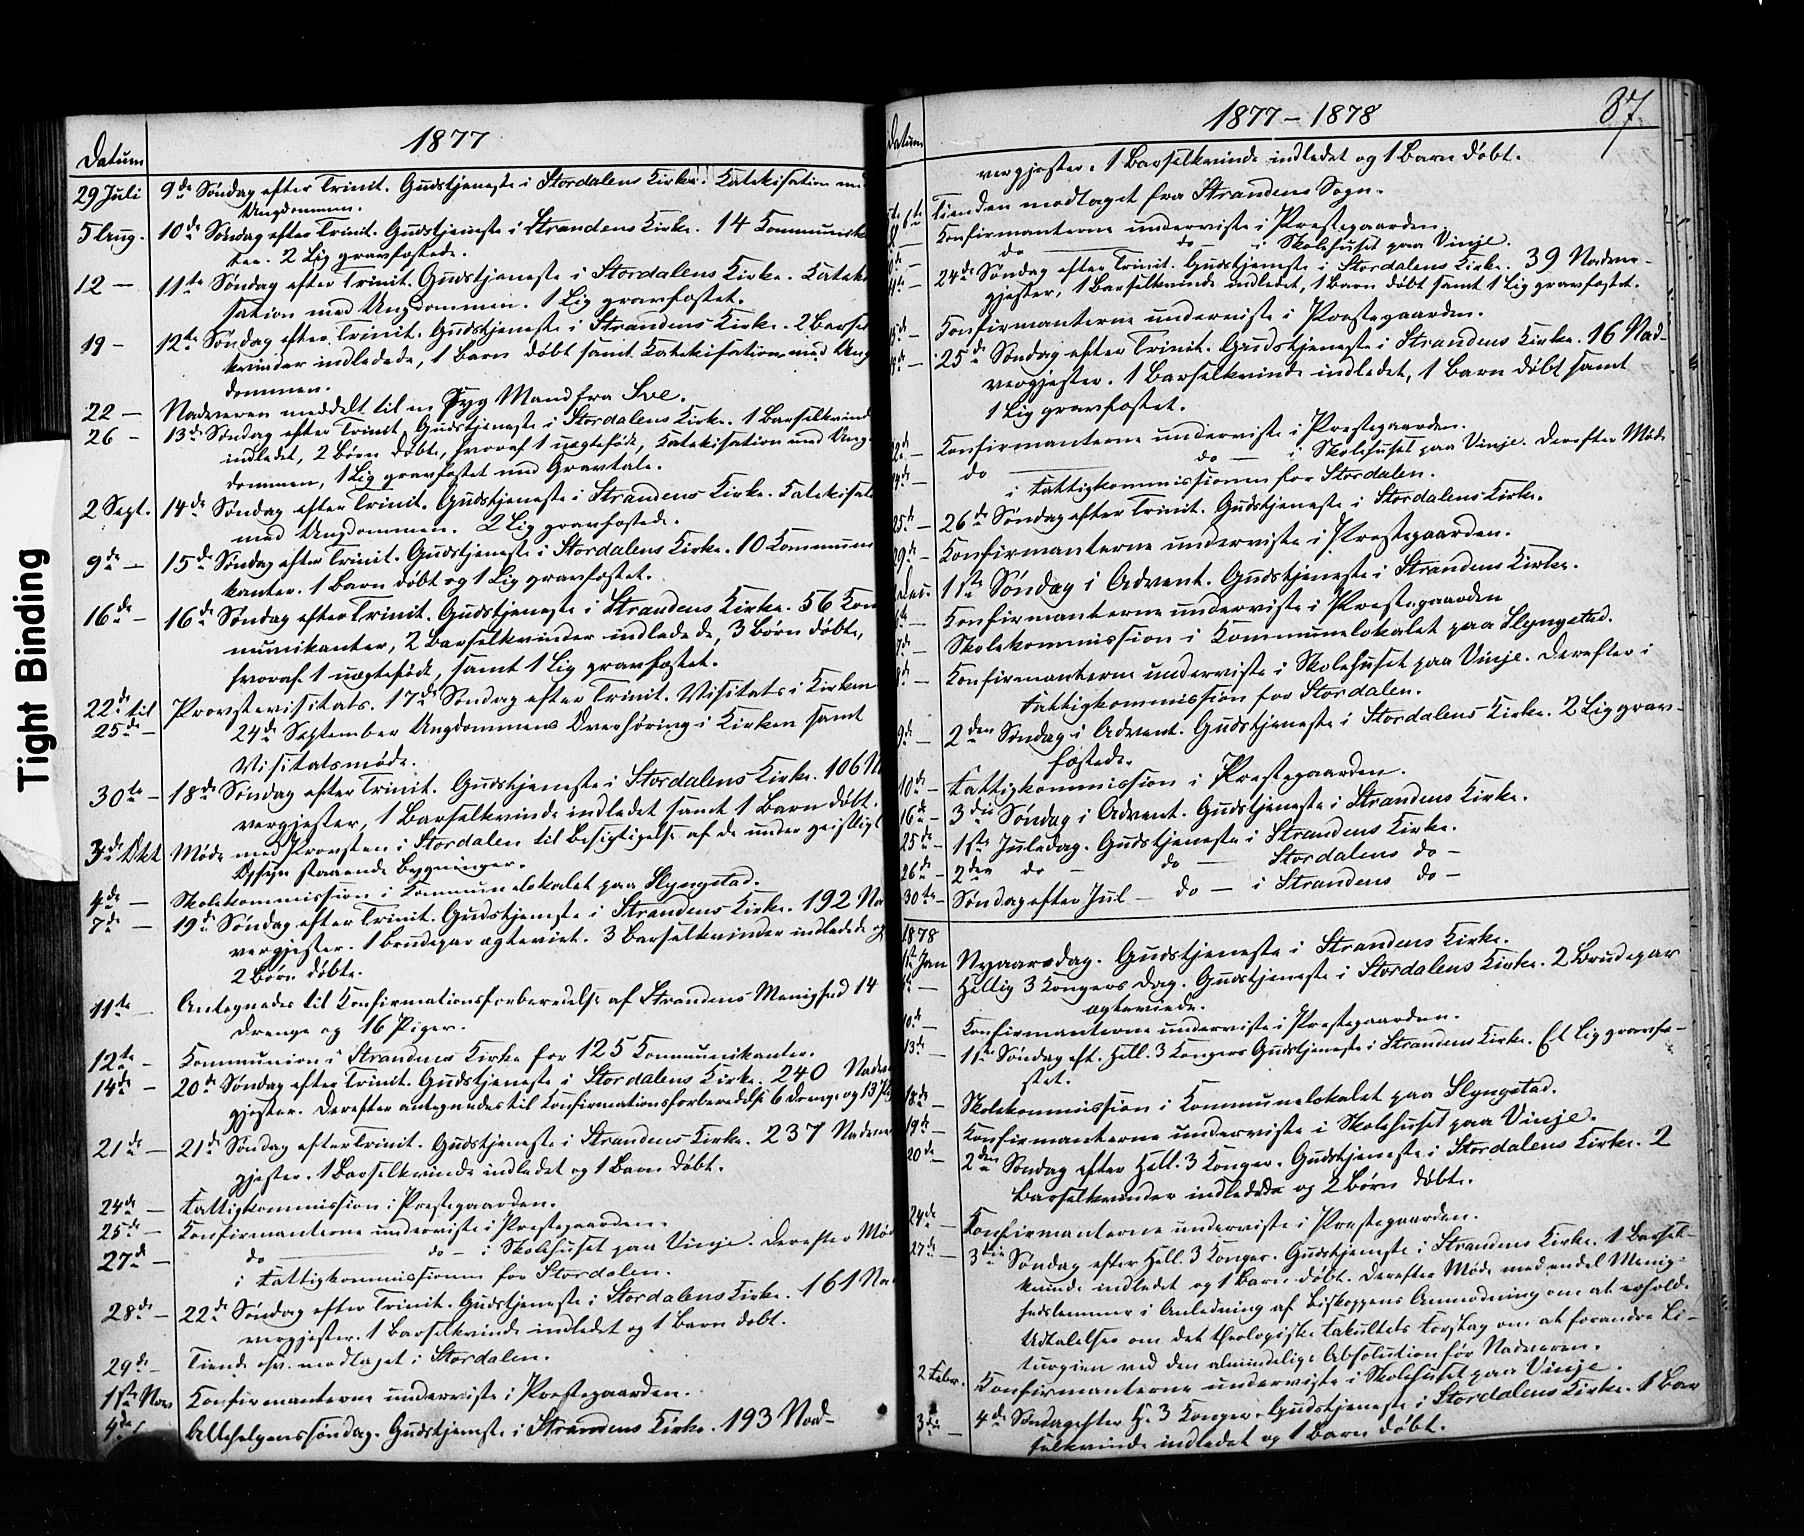 Tight Binding
Datum
1877
29 Juli 9de Søndag efter Trinit. Gudstjeneste i Stordalens Kirke. Katekisation med
Ungdommen.
5 Aug. 10de Søndag efter Trinit. Gudstjeneste i Strandens Kirke. 14 Kommunikan-
ter. 2 Lig gravfæstede.
12 — 11te Søndag efter Trinit. Gudstjeneste i Stordalens Kirke. Kateki
sation med Ungdommen. 1 Lig gravfæstet.
19 — 12te Søndag efter Trinit. Gudstjeneste i Strandens Kirke. 2 Barsel
kvinder indledede, 1 Barn døbt samt Katekisation med Ung
dommen.
22 — Nadveren meddelt til en syg Mand fra Sve.
26 — 13de Søndag efter Trinit. Gudstjeneste i Stordalens Kirke. 1 Barselkvinde
indledet, 2 Børn døbte, hvoraf 1 uægtefødt, Katekisation med Ung-
dommen, 1 Lig gravfæstet med Gravtale.
2 Sept. 14de Søndag efter Trinit. Gudstjeneste i Strandens Kirke. Katekisati
med Ungdommen. 2 Lig gravfæstede.
9de — 15de Søndag efter Trinit. Gudstjeneste i Stordalens Kirke. 10 Kommuni
kanter. 1 Barn døbt og 1 Lig gravfæstet.
16de — 16de Søndag efter Trinit. Gudstjeneste i Strandens Kirke. 56 Kom
munikanter, 2 Barselkvinder indledede, 3 Børn døbte,
hvoraf 1 uægtefødt, samt 1 Lig gravfæstet.
22de til Provstevisitats. 17de Søndag efter Trinit. Visitats i Kirken
25de — 24de September Ungdommens Overhøring i Kirken samt
Visitatsmøde.
30te — 18de Søndag efter Trinit. Gudstjeneste i Stordalens Kirke. 106 N
vergjester, 1 Barselkvinde indledet samt 1 Barn døbt.
3de Okt Møde med Provsten i Stordalen til Besigtigelse af de under geistligt
Opsyn staaende Bygninger.
4de — Skolekommission i Kommunelokalet paa Slyngstad.
7de — 19de Søndag efter Trinit. Gudstjeneste i Strandens Kirke. 192 Nad
vergjester. 1 Brudepar ægteviet. 3 Barselkvinder indledede og
2 Børn døbte.
11te — Antegnedes til Konfirmationsforberedelse af Strandens Menighed 14
Drenge og 16 Piger.
12te — Kommunion i Strandens Kirke for 125 Kommunikanter.
14de — 20de Søndag efter Trinit. Gudstjeneste i Stordalens Kirke. 240 Nadver
gjester. Derefter antegnedes til Konfirmationsforberedelse 6 Drenge og 13 Pi
21de — 21de Søndag efter Trinit. Gudstjeneste i Strandens Kirke. 237 Nadver
gjester. 1 Barselkvinde indledet og 1 Barn døbt.
24de — Fattigkommission i Prestegaarden.
25de — Konfirmanterne underviste i Prestegaarden.
27de — do — do — i Skolehuset paa Vinje. Derefter Møde
i Fattigkommissionen for Stordalen.
28de — 22de Søndag efter Trinit. Gudstjeneste i Stordalens Kirke. 161 Nad
vergjester. 1 Barselkvinde indledet og 1 Barn døbt.
29de — Tiende osv. modtaget i Stordalen.
1ste Nov Konfirmanterne underviste i Prestegaarden.
4de Allehelgenssøndag. Gudstjeneste i Strandens Kirke. 193 Nad-
Datum
1877–1878
87.
vergjester. 1 Barselkvinde indledet og 1 Barn døbt.
6te Tienden modtaget fra Strandens Sogn.
Konfirmanterne underviste i Prestegaarden.
do — do — i Skolehuset paa Vinje.
24de Søndag efter Trinit. Gudstjeneste i Stordalens Kirke. 39 Nadver-
gjester, 1 Barselkvinde indledet, 1 Barn døbt samt 1 Lig gravfæstet.
Konfirmanterne underviste i Prestegaarden.
25de Søndag efter Trinit. Gudstjeneste i Strandens Kirke. 16 Nad-
vergjester. 1 Barselkvinde indledet, 1 Barn døbt samt
1 Lig gravfæstet.
Konfirmanterne underviste i Prestegaarden.
do — do — i Skolehuset paa Vinje. Derefter Møde
i Fattigkommissionen for Stordalen.
25de — 26de Søndag efter Trinit. Gudstjeneste i Stordalens Kirke.
29de — Konfirmanterne underviste i Prestegaarden.
1ste Søndag i Advent. Gudstjeneste i Strandens Kirke.
Konfirmanterne underviste i Prestegaarden
7de — Skolekommission i Kommunelokalet paa Slyngstad.
8de — Konfirmanterne underviste i Skolehuset paa Vinje. Derefter i
Fattigkommission for Stordalen.
9de — 2den Søndag i Advent. Gudstjeneste i Stordalens Kirke. 2 Lig grav-
fæstede.
10de — Fattigkommission i Prestegaarden.
16de — 3die Søndag i Advent. Gudstjeneste i Strandens Kirke.
25de — 1ste Juledag. Gudstjeneste i Strandens Kirke.
26de — 2den do — do — Stordalens do —
30te — Søndag efter Jul — do — i Strandens do —
1878
1ste Jan Nyaarsdag. Gudstjeneste i Strandens Kirke.
Hellig 3 Kongers Dag. Gudstjeneste i Stordalens Kirke. 2 Brudepar
ægteviede.
10de — Konfirmanterne underviste i Prestegaarden.
13de — 1ste Søndag eft. Hell. 3 Konger Gudstjeneste i Strandens Kirke. Et Lig gravfæ-
stet.
18de — Skolekommission i Kommunelokalet paa Slyngstad.
19de — Konfirmanterne underviste i Skolehuset paa Vinje.
20de — 2den Søndag efter Hell. 3 Konger. Gudstjeneste i Stordalens Kirke. 2
Barselkvinder indledede og 2 Børn døbte.
24de — Konfirmanterne underviste i Prestegaarden.
27de — 3die Søndag efter Hell. 3 Konger. Gudstjeneste i Strandens Kirke. 1 Barsel-
kvinde indledet og 1 Barn døbt. Derefter Møde med endel Menig-
hedslemmer i Anledning af Biskoppens Anmodning om at erholde
Udtalelse om det theologiske Fakultets Forslag om at forandre Li-
turgien ved den almindelige Absolution før Nadveren.
2 Febr. Konfirmanterne underviste i Skolehuset paa Vinje.
3die — 4de Søndag efter H. 3 Konger. Gudstjeneste i Stordalens Kirke. 1 Bar
selkvinde indledet og 1 Barn døbt.